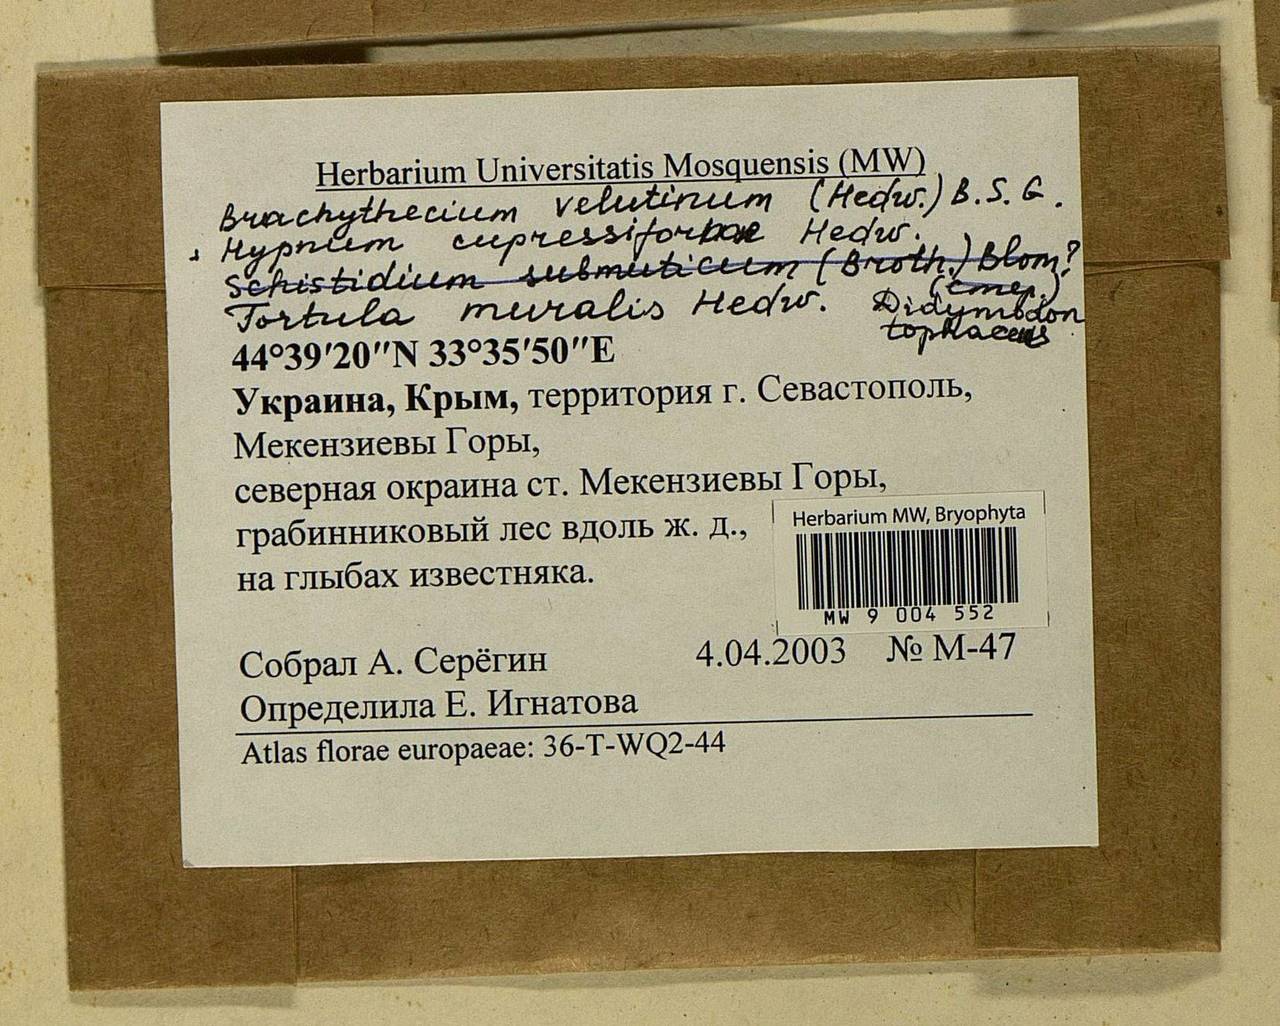 Herbarium Universitatis Mosquensis (MW)
Brachythecium velutinum (Hedw.) B.S.G.
Hypnum cupressiforme Hedw.
Schistidium submuticum (Broth.) Blom?
(стер.)
Tortula muralis Hedw. Didymodon
tophaceus
44°39′20″N 33°35′50″E
Украина, Крым, территория г. Севастополь,
Мекензиевы Горы,
северная окраина ст. Мекензиевы Горы,
грабинниковый лес вдоль ж. д.,
на глыбах известняка.
Herbarium MW, Bryophyta
MW 9 004 552
Собрал А. Серёгин 4.04.2003 № М-47
Определила Е. Игнатова
Atlas florae europaeae: 36-T-WQ2-44